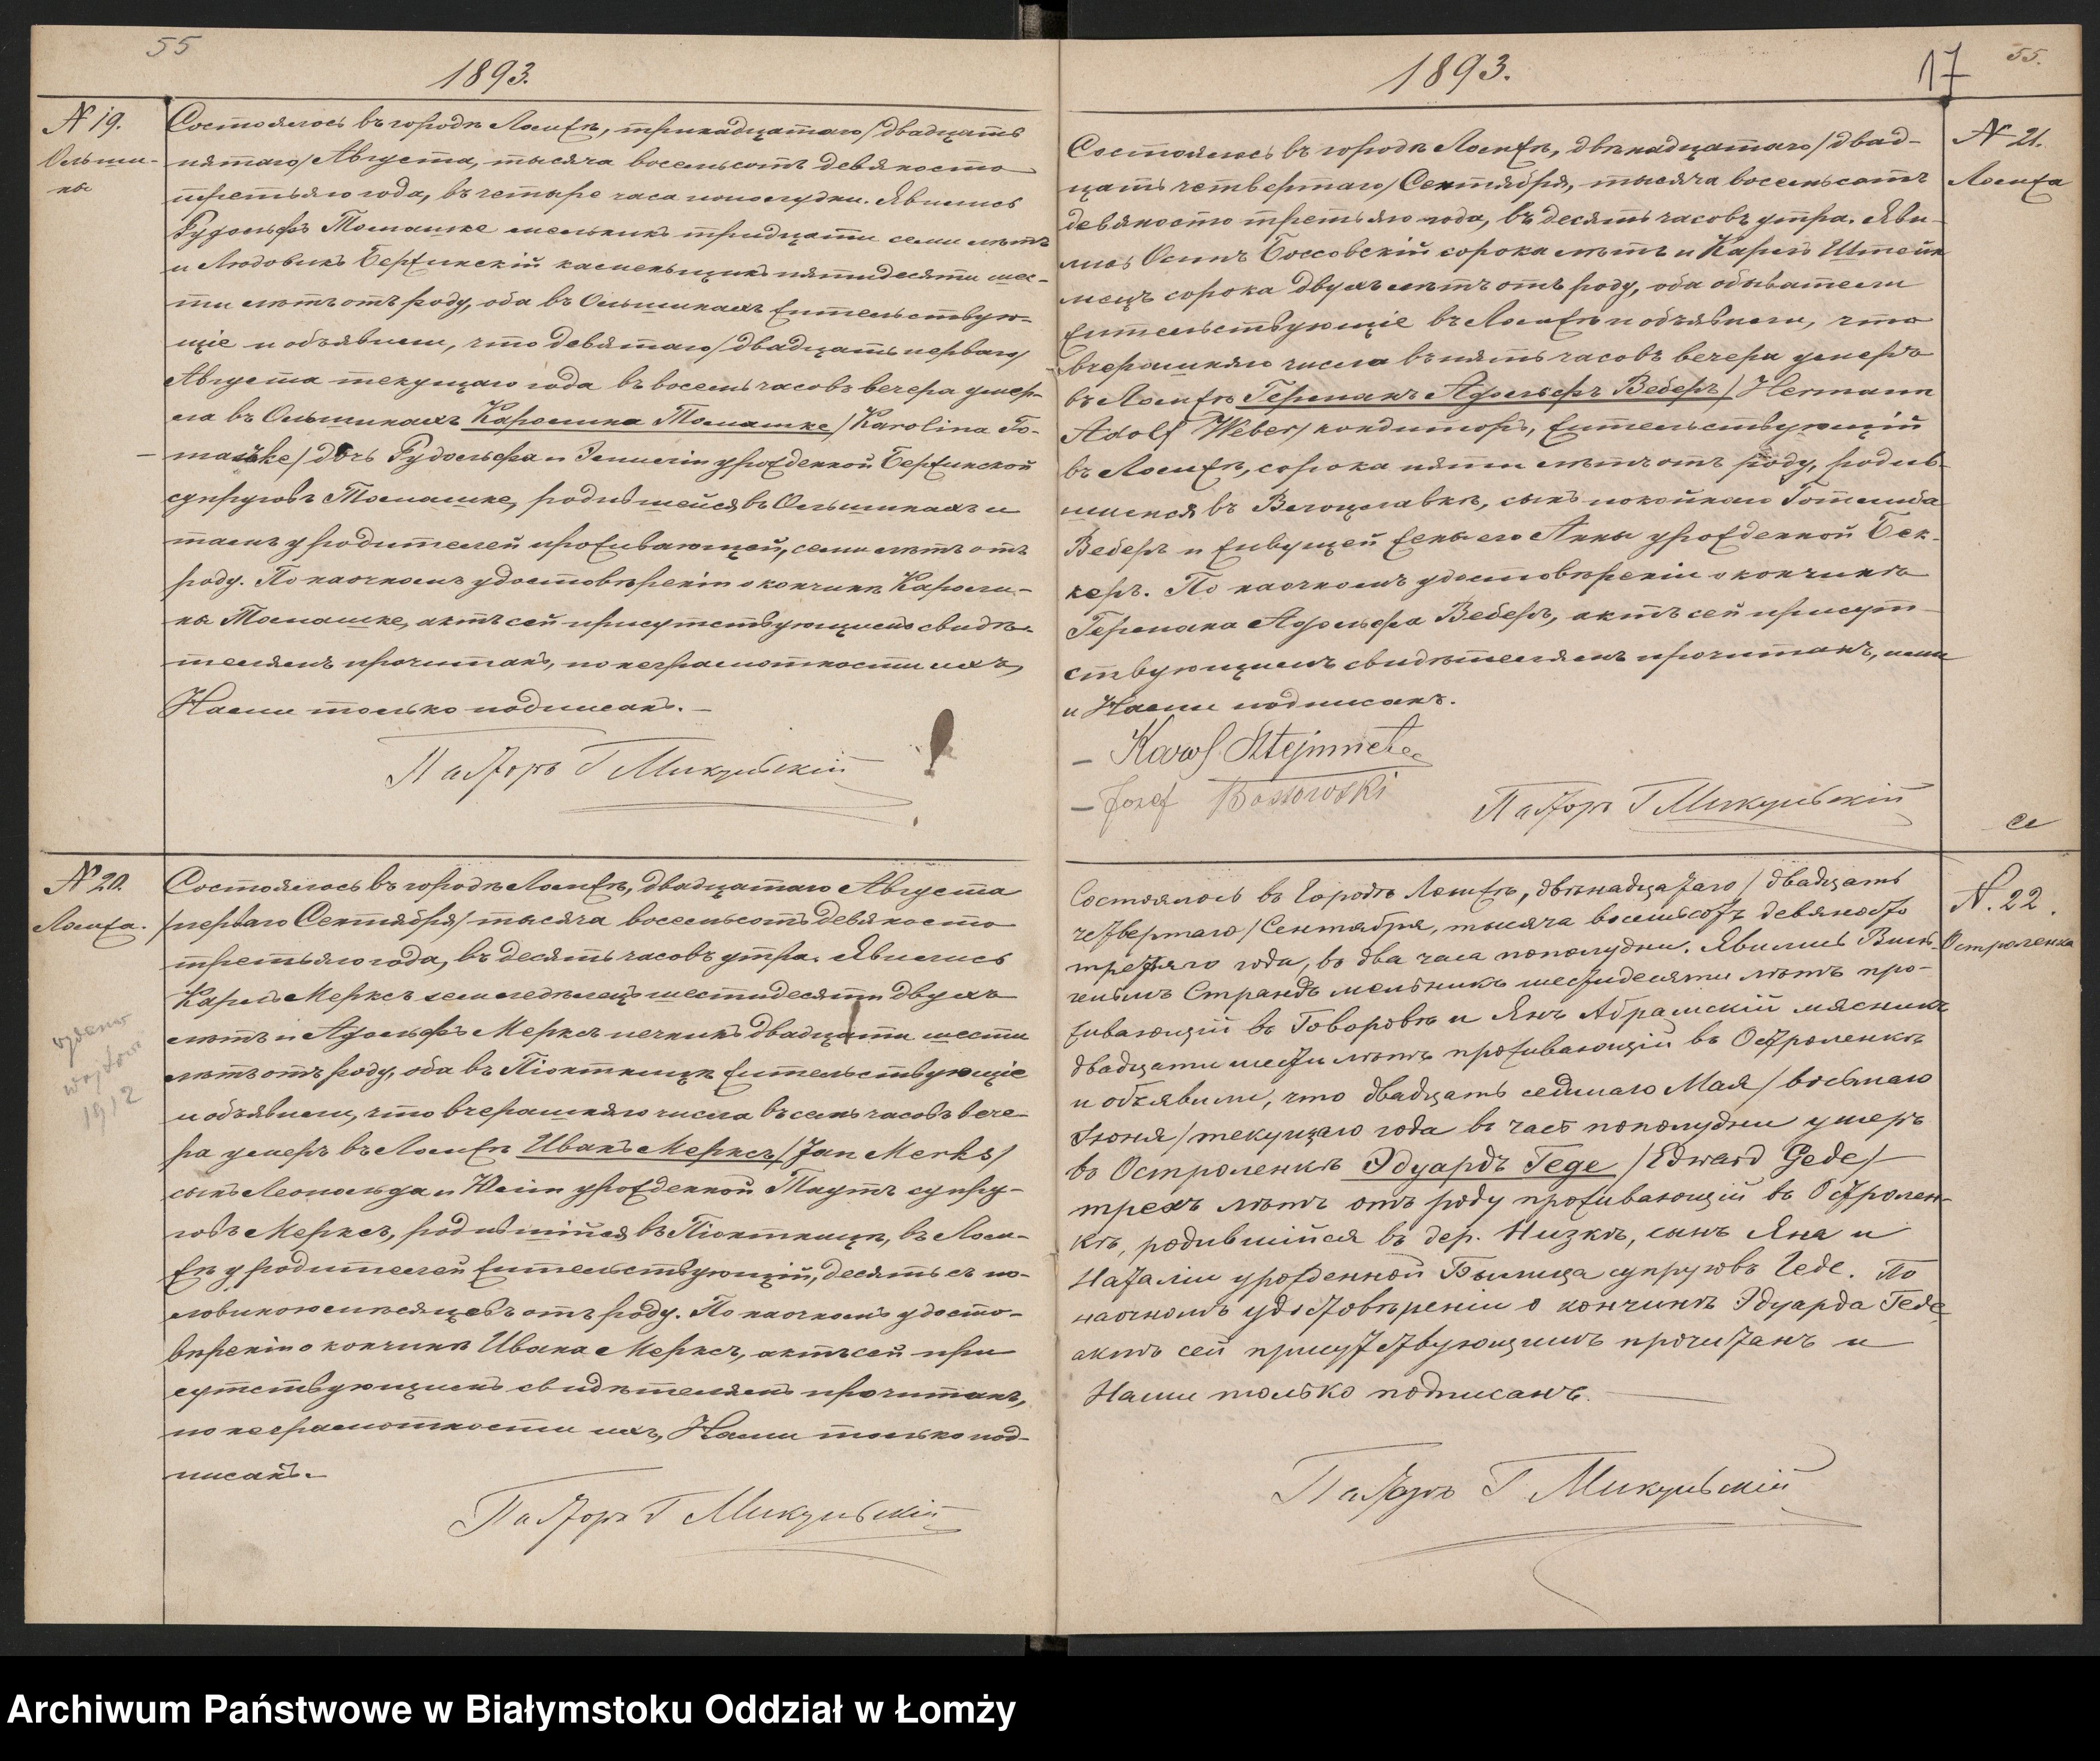 55
1893.
№ 19.
Ольши-
ны
Состоялось въ городѣ Ломжѣ, тринадцатаго /двадцать
пятаго/ Августа, тысяча восемьсотъ девяносто
третьяго года, въ четыре часа пополудни. Явились
Рудольфъ Томашке мельникъ тридцати семи лѣтъ
и Людовикъ Бержинскій каменьщикъ пятидесяти шес-
ти лѣтъ отъ роду, оба въ Ольшинахъ жительствую-
щіе и объявили, что девятаго /двадцать перваго/
Августа текущаго года въ восемь часовъ вечера умер-
ла въ Ольшинахъ Каролина Томашке /Karolina To-
maschke/ дочь Рудольфа и Эмиліи урожденной Бержинской
супруговъ Томашке, родившейся въ Ольшинахъ и
тамъ у родителей проживающей, семи лѣтъ отъ
роду. По наочномъ удостовѣреніи о кончинѣ Кароли-
ны Томашке, актъ сей присутствующимъ свидѣ-
телямъ прочитанъ, по неграмотности ихъ,
Нами только подписанъ. —
Пасторъ Г Микульскій
№ 20.
Ломжа.
wojtowi
1912
Состоялось въ городѣ Ломжѣ, двадцатаго Августа
/перваго Сентября/ тысяча восемьсотъ девяносто
третьяго года, въ десять часовъ утра. Явились
Карлъ Мерксъ земледѣлецъ шестидесяти двухъ
лѣтъ и Адольфъ Мерксъ печникъ двадцати шести
лѣтъ отъ роду, оба въ Піонтницѣ жительствующіе
и объявили, что вчерашняго числа въ семь часовъ вече-
ра умеръ въ Ломжѣ Иванъ Мерксъ /Jan Merks/
сынъ Леопольда и Юліи урожденной Таутъ супру-
говъ Мерксъ, родившійся въ Піонтницѣ, въ Лом-
жѣ у родителей жительствующій, десять съ по-
ловиною мѣсяцевъ отъ роду. По наочномъ удосто-
вѣреніи о кончинѣ Ивана Мерксъ, актъ сей при
сутствующимъ свидѣтелямъ прочитанъ,
по неграмотности ихъ, Нами только под-
писанъ.
Пасторъ Г Микульскій
1893.
17
55.
№ 21.
Ломжа
Состоялось въ городѣ Ломжѣ, двѣнадцатаго /двад-
цать четвертаго/ Сентября, тысяча восемьсотъ
девяносто третьяго года, въ десять часовъ утра. Яви-
лись Осипъ Боссовскій сорока лѣтъ и Карлъ Штейн
мецъ сорока двухъ лѣтъ отъ роду, оба обыватели
жительствующіе въ Ломжѣ и объявили, что
вчерашняго числа въ пять часовъ вечера умеръ
въ Ломжѣ Германъ Адольфъ Веберъ /Hermann
Adolf Weber/ кондиторъ, жительствующій
въ Ломжѣ, сорока пяти лѣтъ отъ роду, родив-
шійся въ Влоцлавкѣ, сынъ покойнаго Готлиба
Веберъ и живущей жены его Анны урожденной Бек-
керъ. По наочномъ удостовѣреніи о кончинѣ
Германа Адольфа Веберъ, актъ сей присут-
ствующимъ свидѣтелямъ прочитанъ, ими
и Нами подписанъ.
— Karol Sztejnmetz
— Jozef Bossowski
Пасторъ Г Микульскій
№. 22.
Остроленка
Состоялось въ городѣ Ломжѣ, двѣнадцатаго / двадцать
четвертаго / Сентября, тысяча восемьсотъ девяносто
третьяго года, въ два часа пополудни. Явились Виль-
гельмъ Страндъ мельникъ шестидесяти лѣтъ про-
живающій въ Говоровѣ и Янъ Абрамскій мясникъ
двадцати шести лѣтъ проживающій въ Остроленкѣ
и объявили, что двадцать седьмаго Мая / восьмаго
Іюня / текущаго года въ часъ пополудни умеръ
въ Остроленкѣ Эдуардъ Геде /Edward Gede/
трехъ лѣтъ отъ роду проживающій въ Остролен-
кѣ, родившійся въ дер. Низкѣ, сынъ Яна и
Наталіи урожденной Былица супруговъ Геде. По
наочномъ удостовѣреніи о кончинѣ Эдуарда Геде
актъ сей присутствующимъ прочитанъ и
Нами только подписанъ.
Пасторъ Г Микульскій
Archiwum Państwowe w Białymstoku Oddział w Łomży